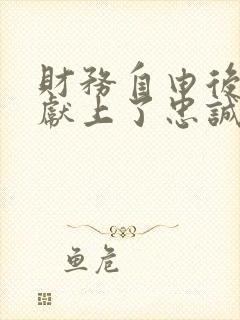 財務自由後
獻上了忠誠
魚危